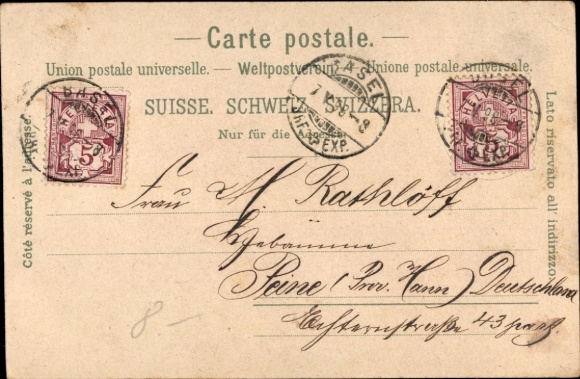 — Carte postale. —
Union postale universelle. — Weltpostverein. — Unione postale universale.
SUISSE. SCHWEIZ. SVIZZERA.
Nur für die Adresse.
Côté réservé à l'adresse.
Lato riservato all' indirizzo.
BASEL
BRF. EXP.
BASEL
5
5
BRF. EXP.
Frau M. Rathlöff
Hebamme
Peine (Prov. Hann) Deutschland
Echternstraße 43
8 —